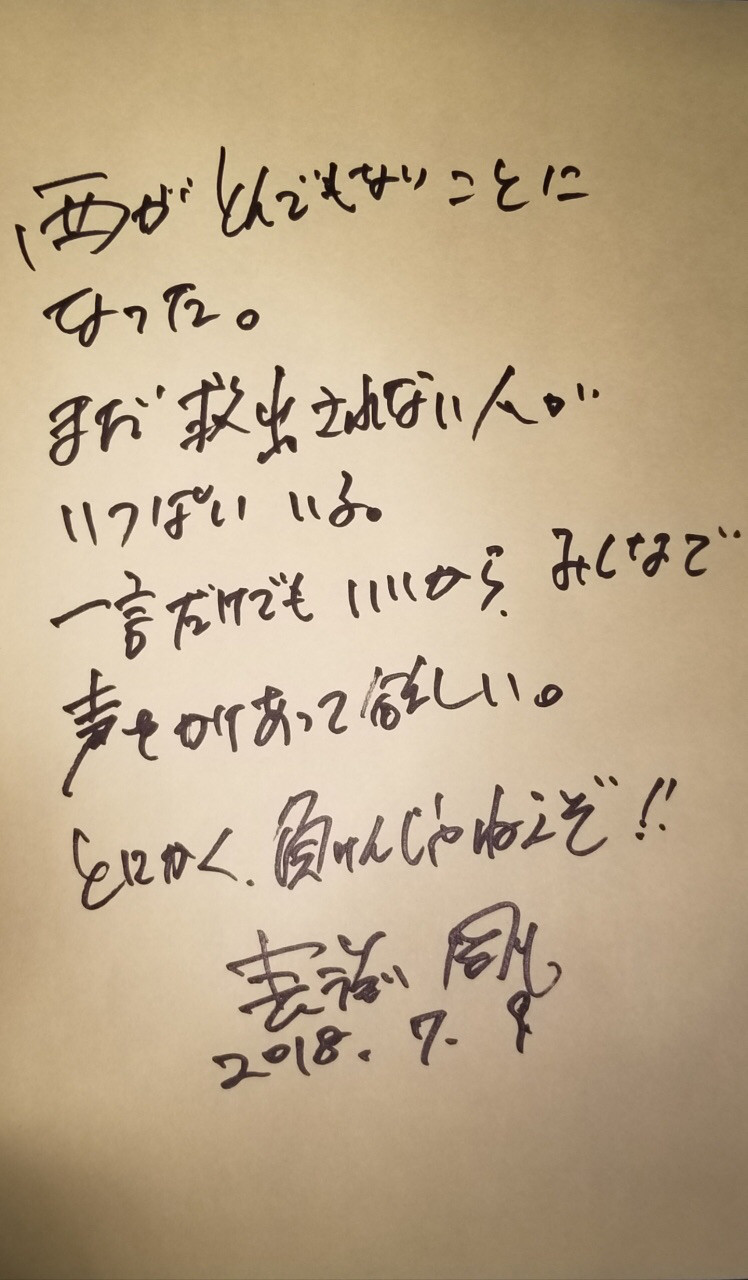 西がとんでもないことに
なった。
まだ救出されない人が
いっぱいいる。
一言だけでもいいから、みんなで
声をかけあって欲しい。
とにかく、負けんじゃねえぞ!!
長渕 剛
2018. 7. 9